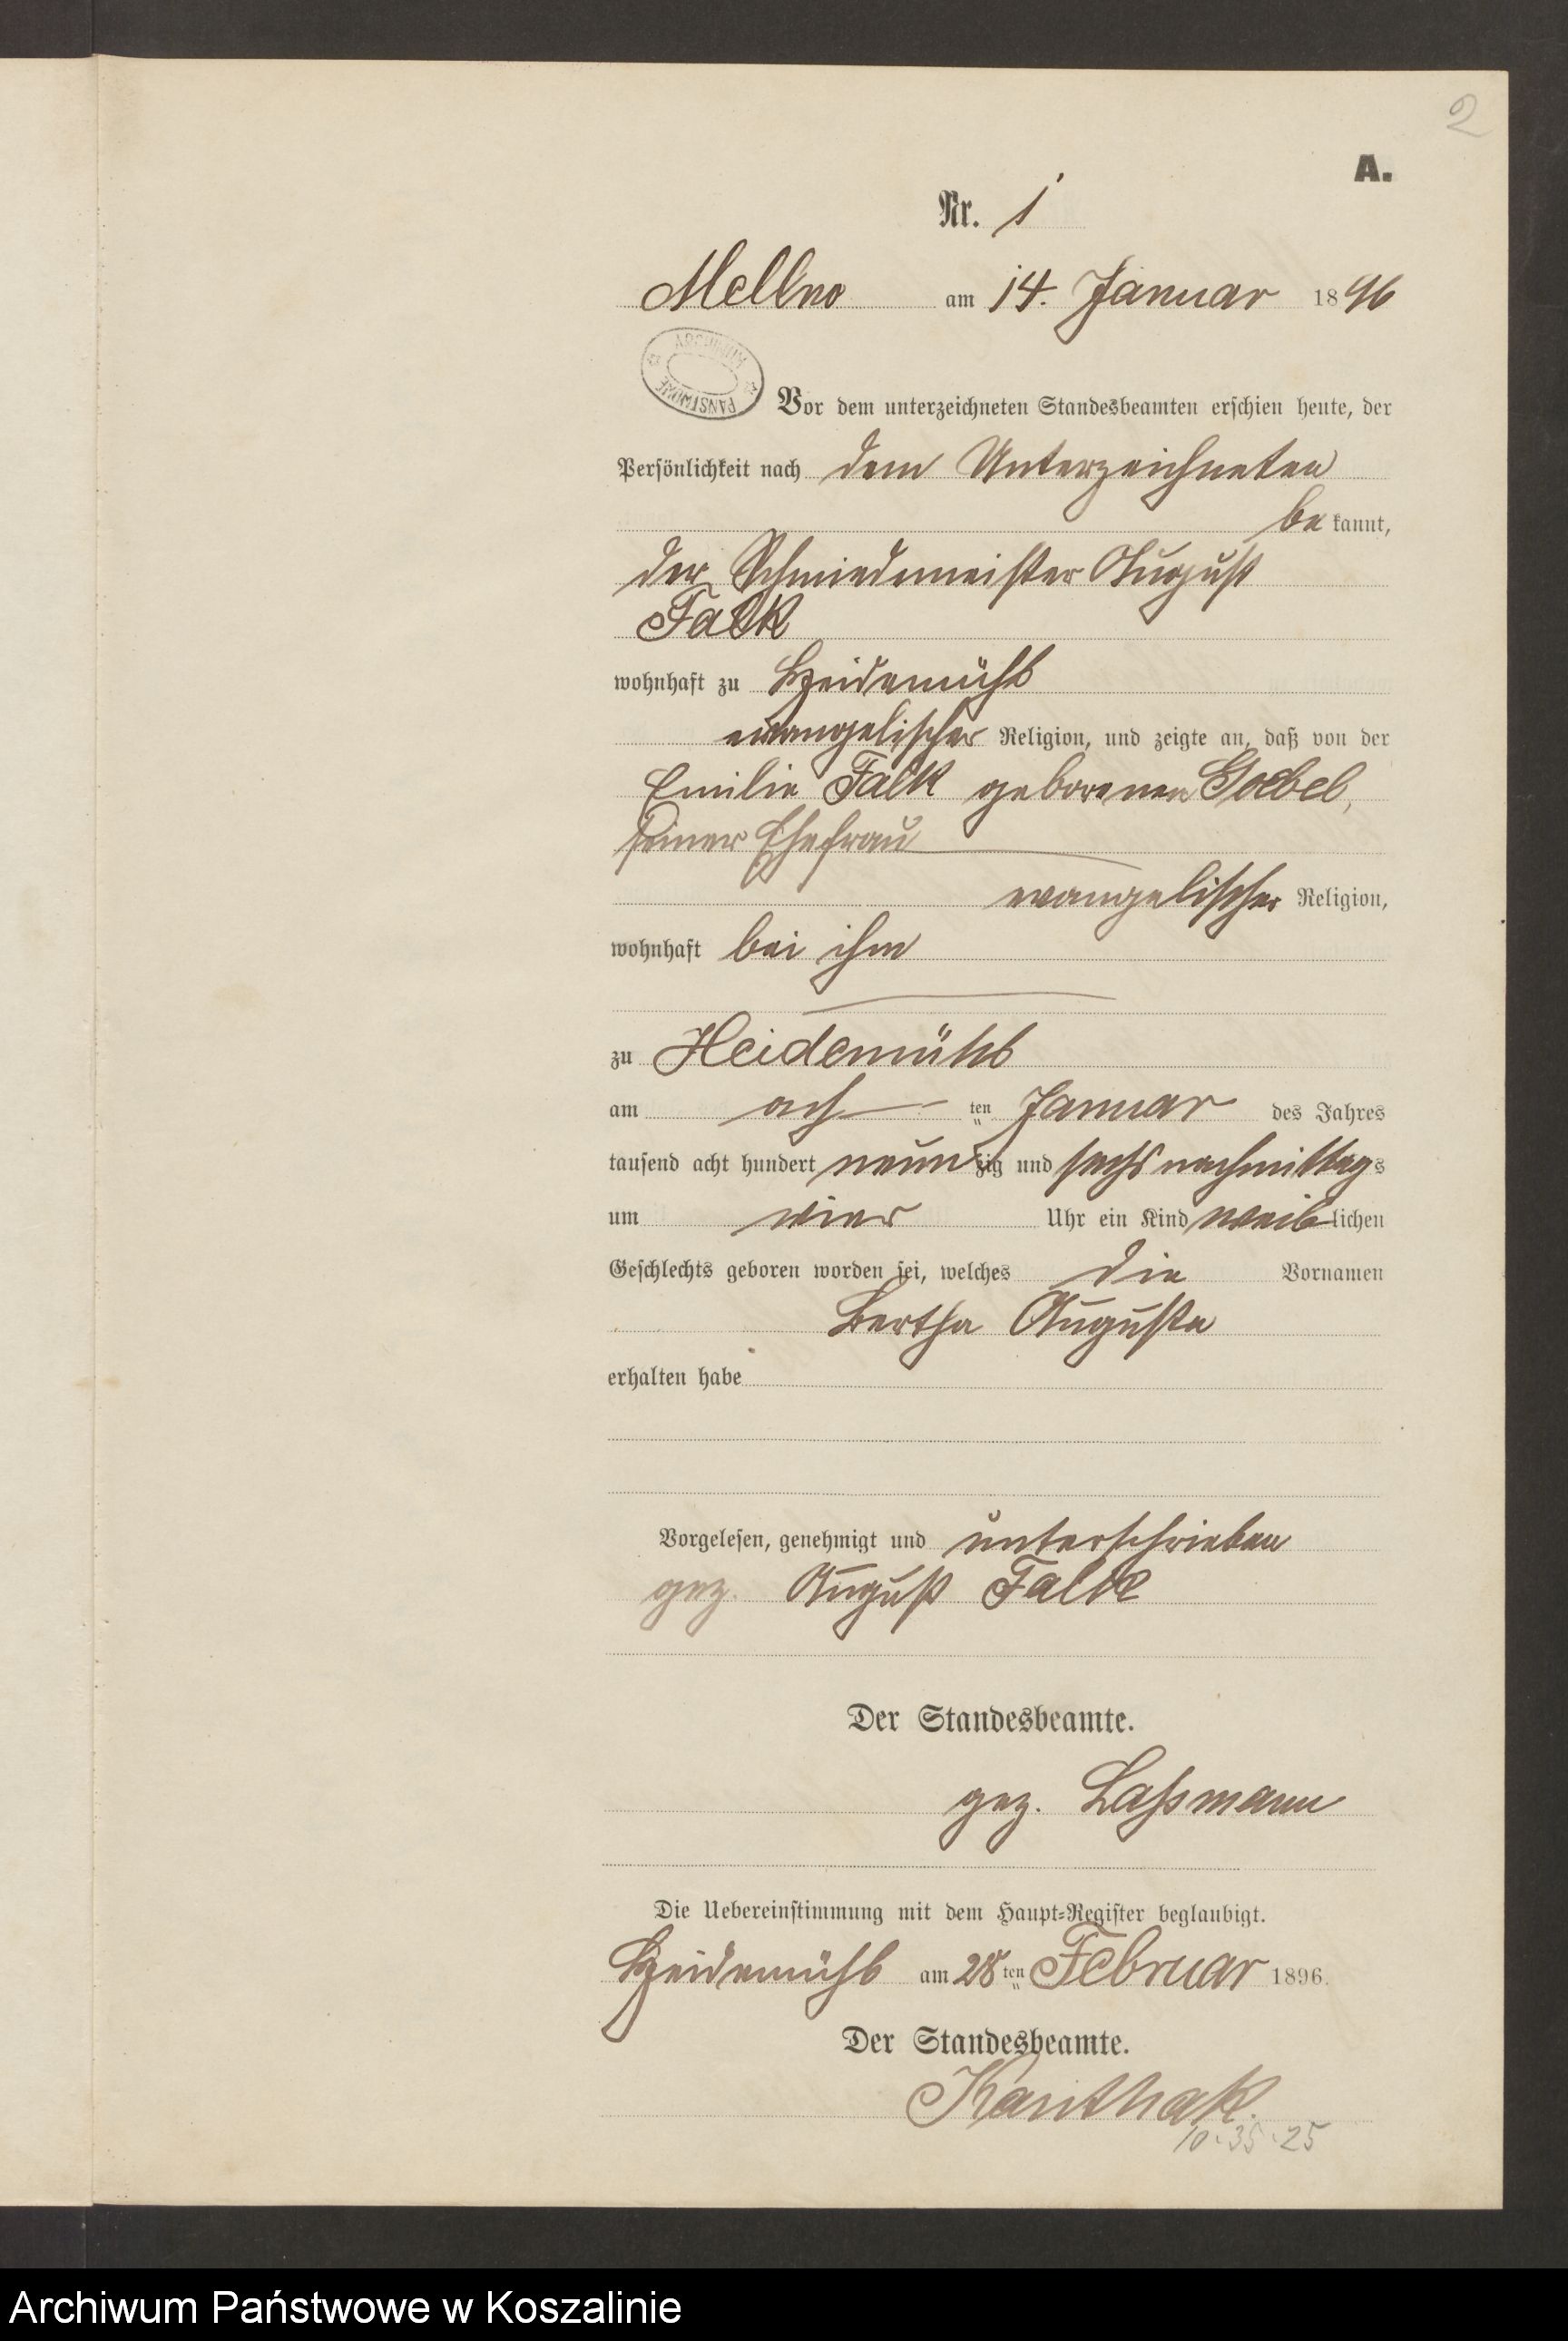 2
A.
Nr. 1
Mellno am 14. Januar 1896
ARCHIWUM PAŃSTWOWE
Vor dem unterzeichneten Standesbeamten erschien heute, der
Persönlichkeit nach dem Unterzeichneten
be kannt,
der Schmiedemeister August
Falk
wohnhaft zu Heidemühl
evangelischer Religion, und zeigte an, daß von der
Emilie Falk geborenen Goebel,
seiner Ehefrau
evangelischer Religion,
wohnhaft bei ihm
zu Heidemühl
am ach ten Januar des Jahres
tausend acht hundert neun zig und sechs nachmittag s
um vier Uhr ein Kind weib lichen
Geschlechts geboren worden sei, welches die Vornamen
Bertha Auguste
erhalten habe
Vorgelesen, genehmigt und unterschrieben
gez. August Falk
Der Standesbeamte.
gez. Laßmann
Die Uebereinstimmung mit dem Haupt-Register beglaubigt.
Heidemühl am 28 ten Februar 1896.
Der Standesbeamte.
Kanthak.
10·35·25
Archiwum Państwowe w Koszalinie